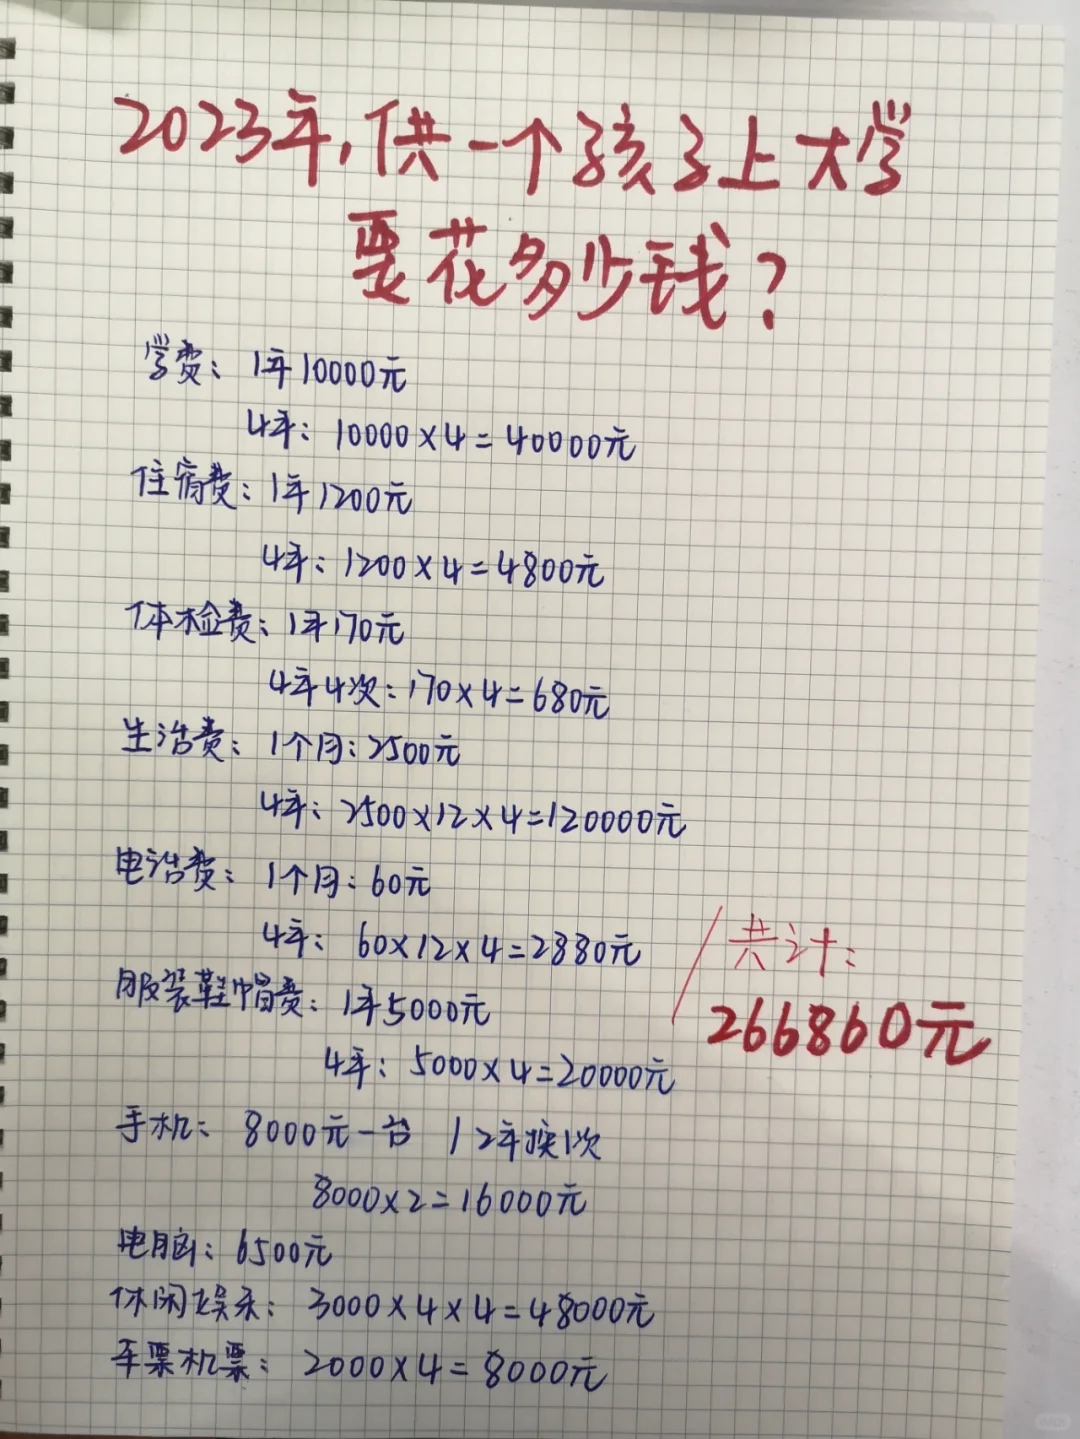 2023年,供一个孩子上大学
要花多少钱?
学费:1年10000元
4年:10000×4=40000元
住宿费:1年1200元
4年:1200×4=4800元
体检费:1年170元
4年4次:170×4=680元
生活费:1个月:2500元
4年:2500×12×4=120000元
电话费:1个月:60元
4年:60×12×4=2880元
共计:
266860元
服装鞋帽费:1年5000元
4年:5000×4=20000元
手机:8000元一台 / 2年换1次
8000×2=16000元
电脑:6500元
休闲娱乐:3000×4×4=48000元
车票机票:2000×4=8000元